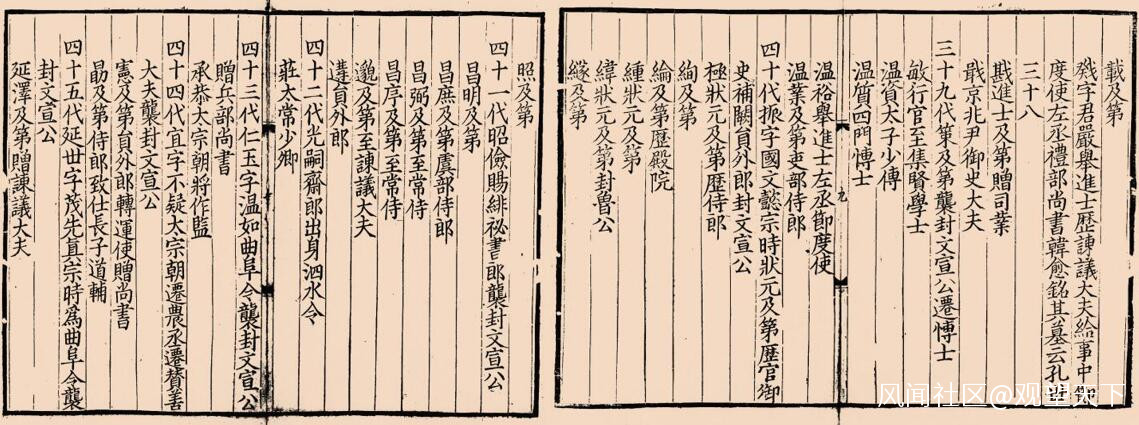 載及第
戣字君嚴舉進士歷諫議大夫給事中
度使左丞禮部尚書韓愈銘其墓云孔
三十八
戡進士及第贈司業
戢京兆尹御史大夫
三十九代策及第襲封文宣公遷愽士
敏行官至集賢學士
温資太子少傅
温質四門愽士
温裕舉進士左丞節度使
温業及第吏部侍郎
四十代振字國文懿宗時狀元及第歷官御
史補闕員外郎封文宣公
極狀元及第歷侍郎
絢及第
綸及第歷殿院
緟狀元及第
緯狀元及第封魯公
及第
照及第
四十一代昭儉賜緋祕書郎襲封文宣公
昌明及第
昌庶及第虞部侍郎
昌弼及第至常侍
昌序及第至常侍
邈及第至諫議大夫
員外郎
四十二代光嗣齋郎出身泗水令
莊太常少卿
四十三代仁玉字温如曲阜令襲封文宣公
贈兵部尚書
承恭太宗朝將作監
四十四代宜字不疑太宗朝遷農丞遷賛善
大夫襲封文宣公
憲及第員外郎轉運使贈尚書
勗及第侍郎致仕長子道輔
四十五代延世字茂先真宗時爲曲阜令襲
封文宣公
延澤及第贈諫議大夫
九
十
风闻社区@观望天下